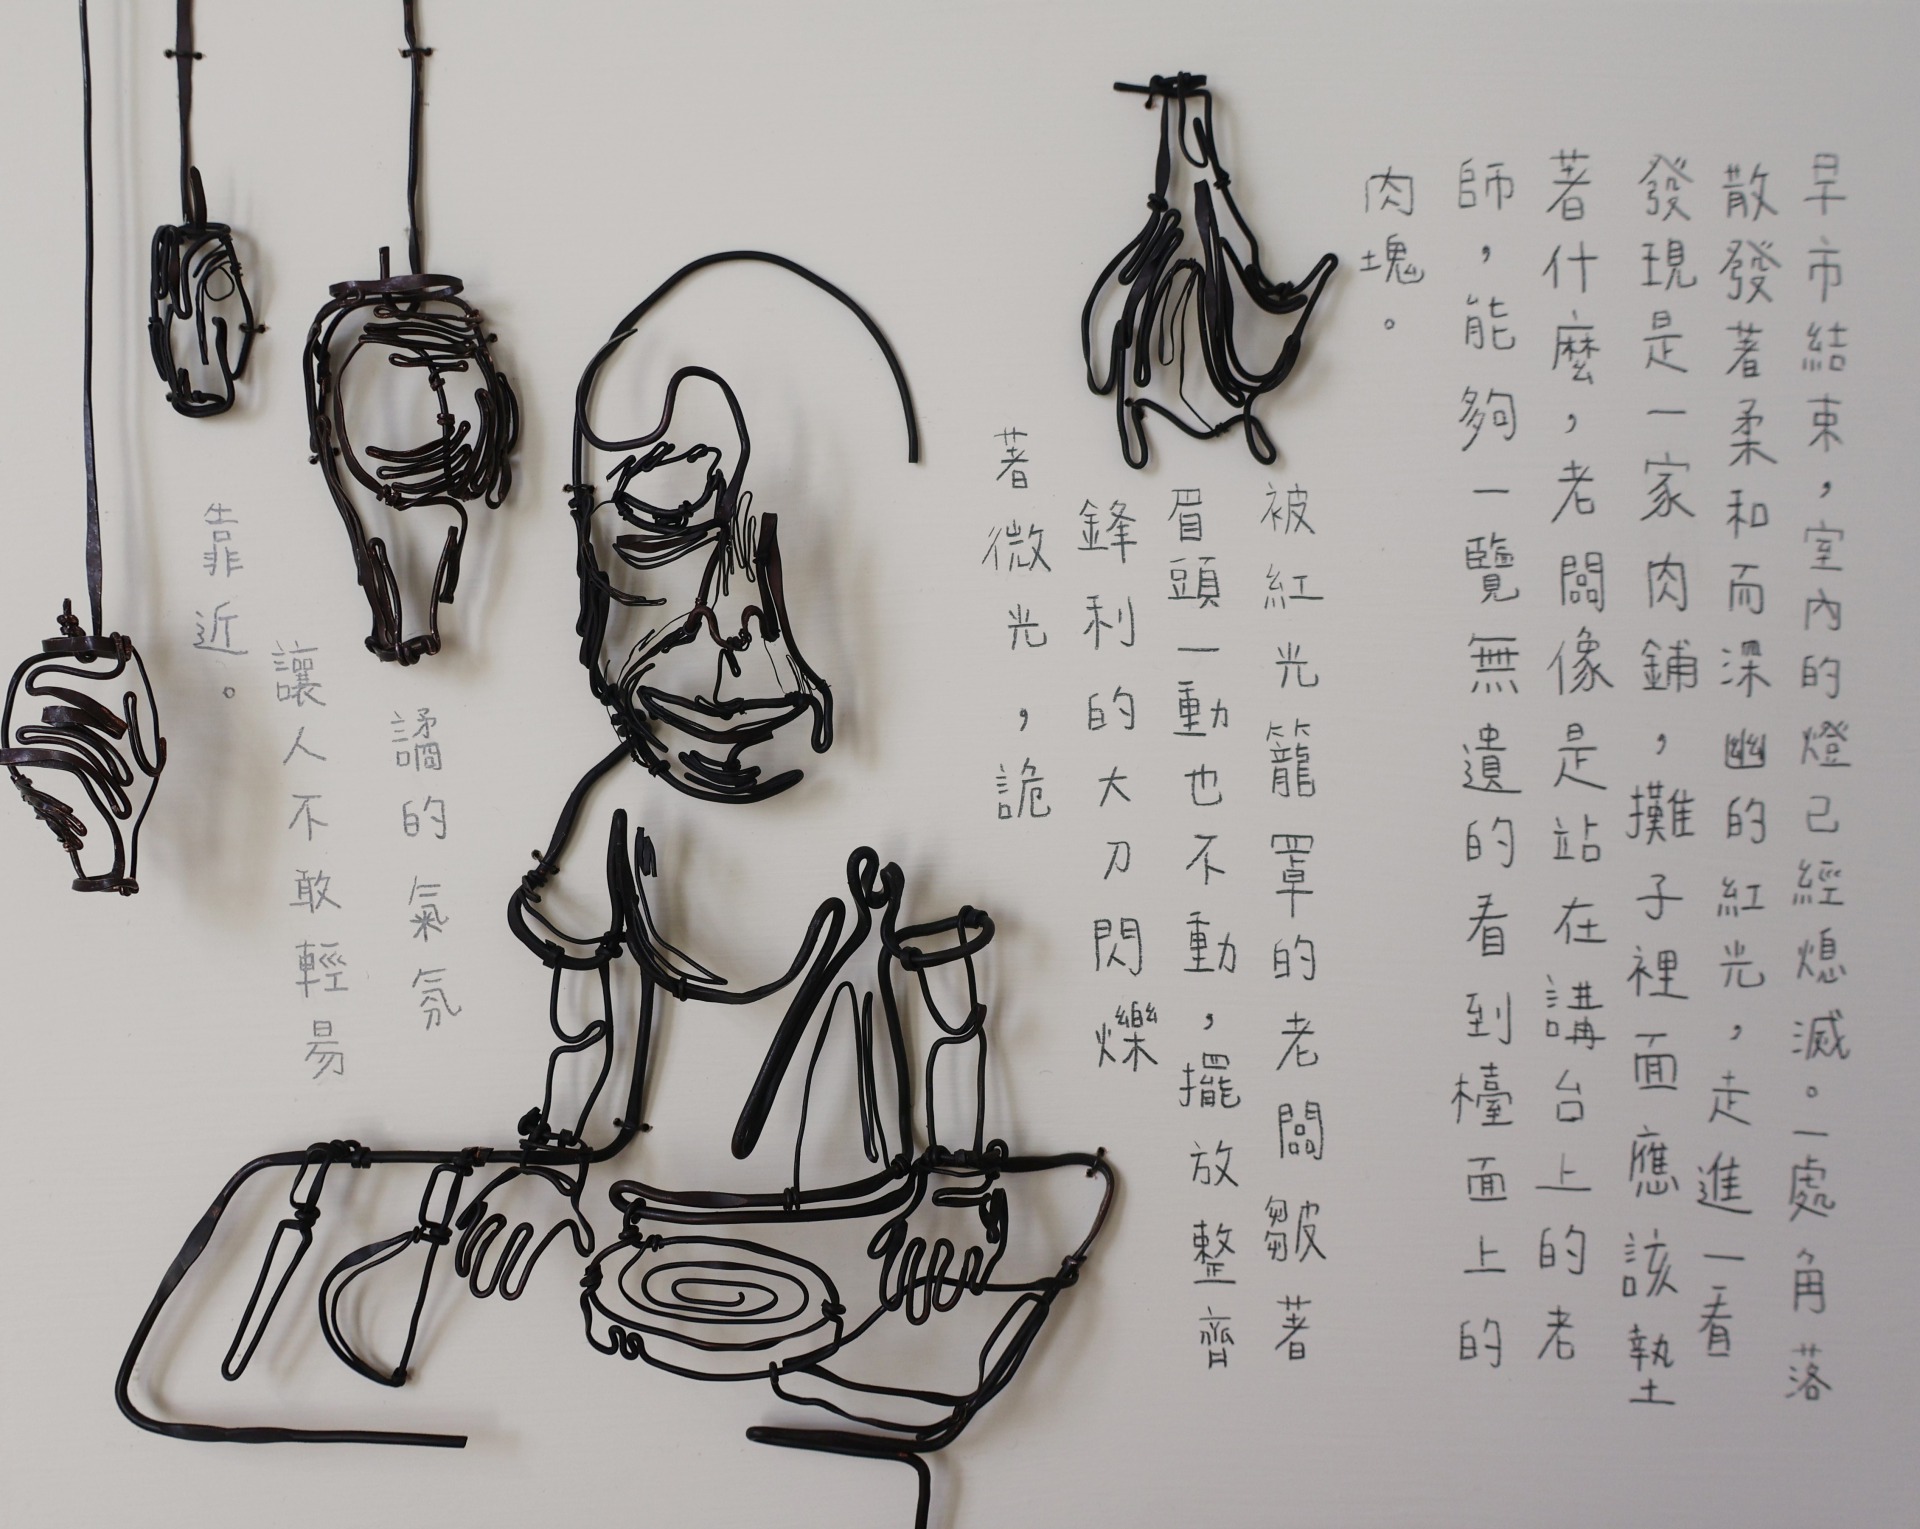 早市結束，室內的燈已經熄滅。一處角落
散發著柔和而深幽的紅光，走進一看
發現是一家肉鋪，攤子裡面應該墊
著什麼，老闆像是站在講台上的老
師，能夠一覽無遺的看到檯面上的
肉塊。
被紅光籠罩的老闆皺著
眉頭一動也不動，擺放整齊
鋒利的大刀閃爍
著微光，詭
譎的氣氛
讓人不敢輕易
靠近。